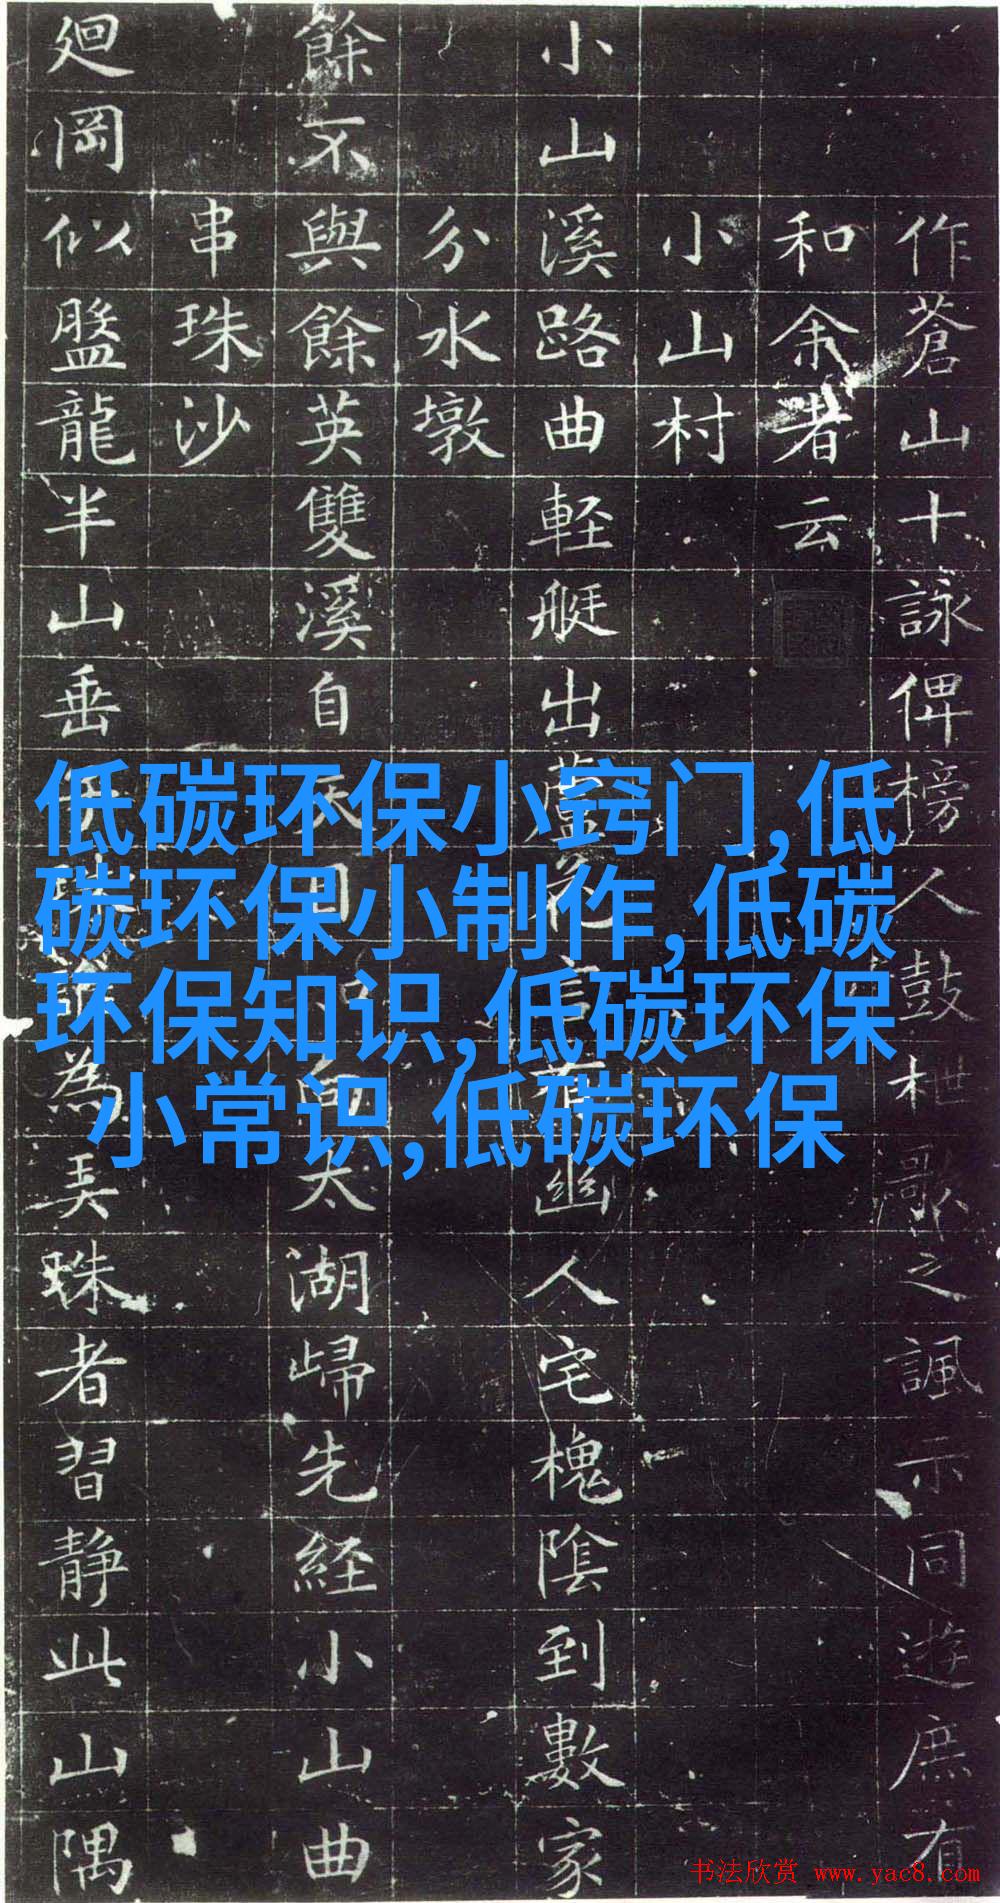 作蒼山十詠俾榜人鼓枻歌之諷示同遊庶有
和余者云
小山村
小山溪路曲軽艇出蘆花言有幽人宅槐陰到數家
分水墩
餘不與餘英雙溪自向太湖歸先経小山曲
串珠沙
廻岡似盤龍半山垂為弄珠者習静此山隅
低碳环保小窍门,低
碳环保小制作,低碳
环保知识,低碳环保
小常识,低碳环保
书法欣赏 www.yac8.com